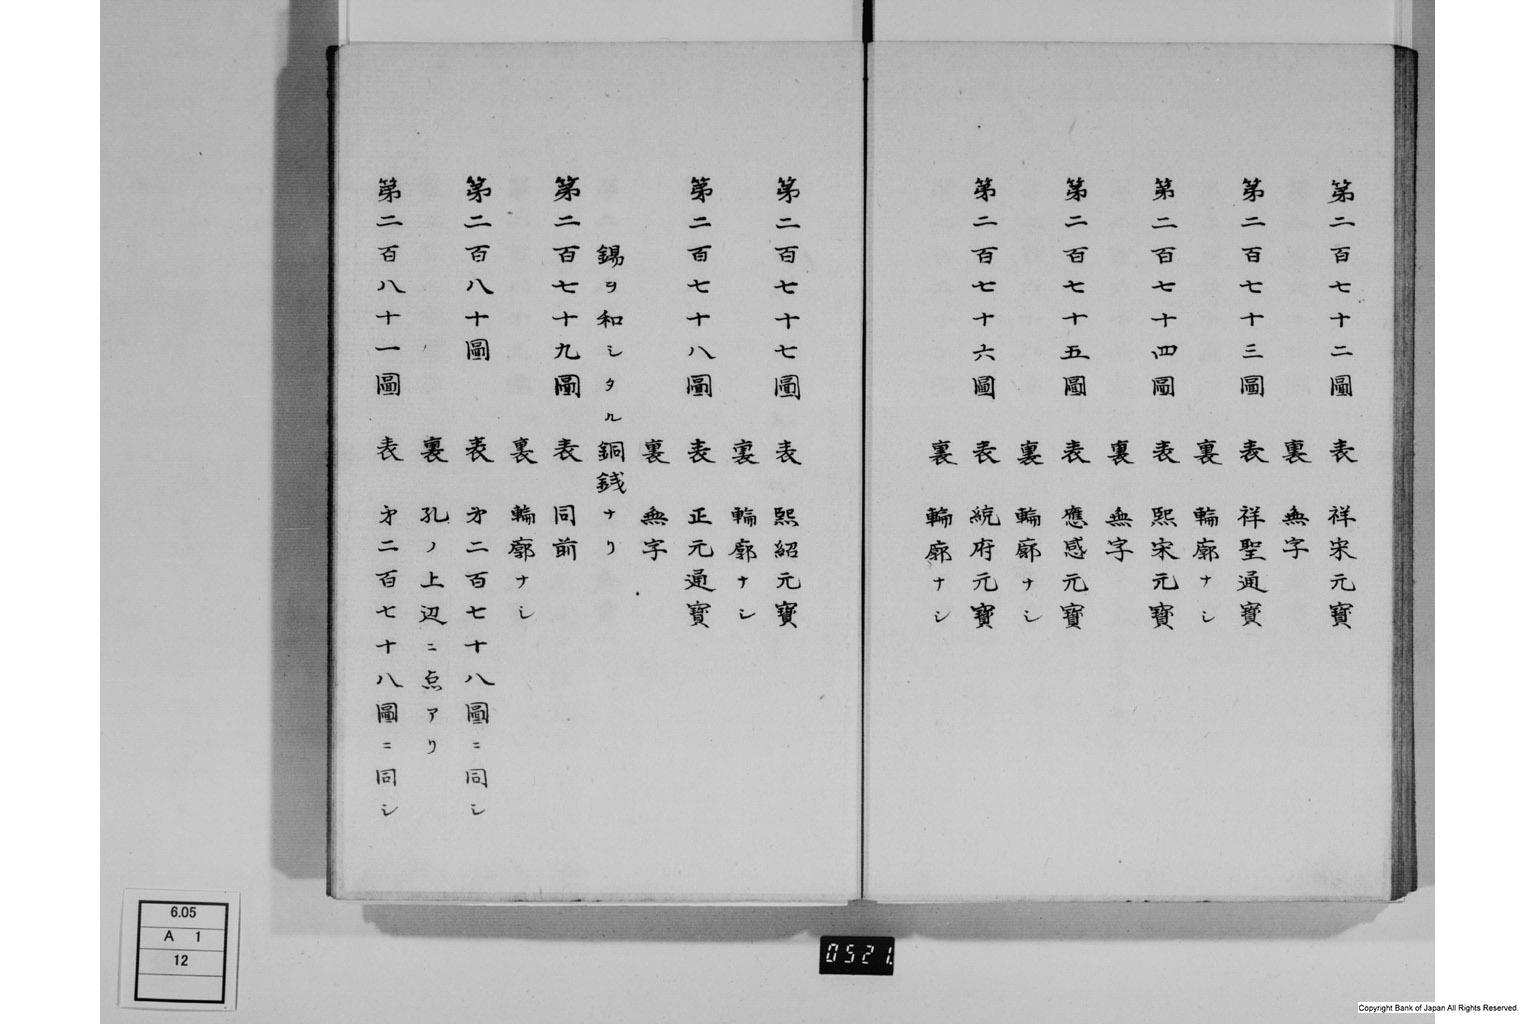 第二百七十二圖 表 祥宋元寳
裏 無字
第二百七十三圖 表 祥聖通寳
裏 輪廓ナシ
第二百七十四圖 表 熙宋元寳
裏 無字
第二百七十五圖 表 應感元寳
裏 輪廓ナシ
第二百七十六圖 表 統府元寳
裏 輪廓ナシ
第二百七十七圖 表 熙紹元寳
裏 輪廓ナシ
第二百七十八圖 表 正元通寳
裏 無字
錫ヲ和シタル銅銭ナリ
第二百七十九圖 表 同前
裏 輪廓ナシ
第二百八十圖 表 㐧二百七十八圖ニ同シ
裏 孔ノ上辺ニ点アリ
第二百八十一圖 表 㐧二百七十八圖ニ同シ
6.05
A 1
12
0521.
Copyright Bank of Japan All Rights Reserved.